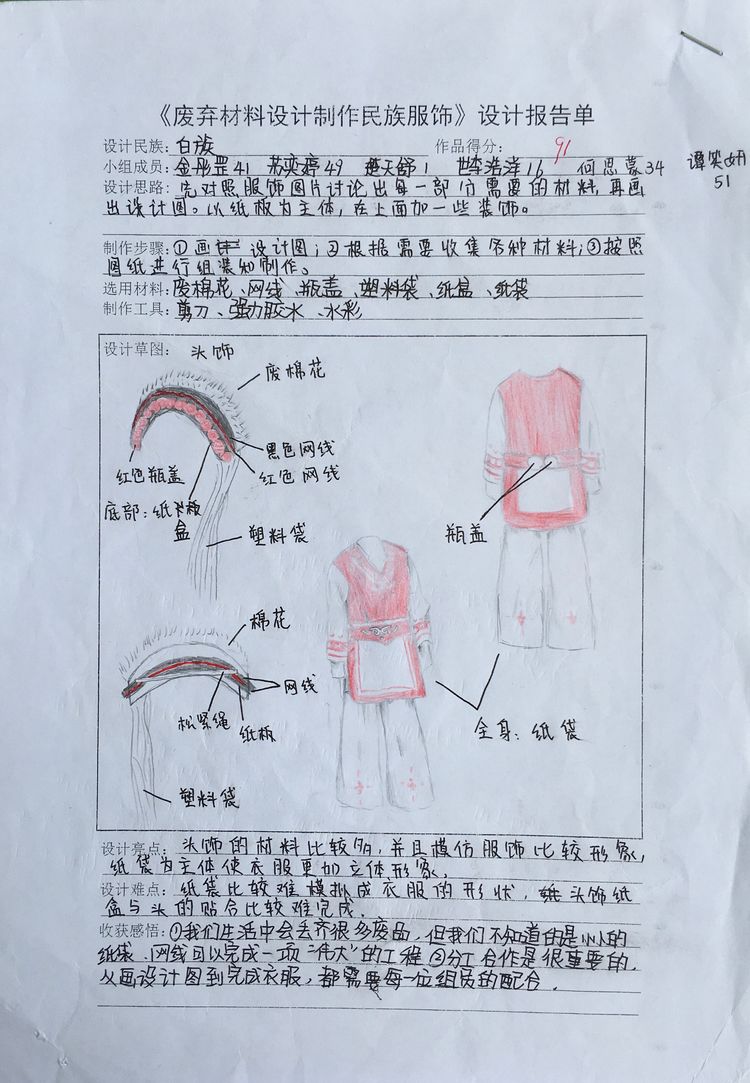 《废弃材料设计制作民族服饰》设计报告单
设计民族：白族 作品得分：91
小组成员：金彤罡41 苏奕婷49 楚天舒1 李浩洋16 何思蒙34 谭笑妍51
设计思路：先对照服饰图片讨论出每一部分需要的材料，再画
出设计图。以纸板为主体，在上面加一些装饰。
制作步骤：①画设计图；②根据需要收集各种材料；③按照
图纸进行组装和制作。
选用材料：废棉花、网线、瓶盖、塑料袋、纸盒、纸袋
制作工具：剪刀、强力胶水、水彩
设计草图：头饰
废棉花
黑色网线
红色瓶盖
红色网线
底部：纸板
盒
塑料袋
瓶盖
棉花
网线
松紧绳
纸板
全身：纸袋
塑料袋
设计亮点：头饰的材料比较多，并且模仿服饰比较形象，
纸袋为主体使衣服更加立体形象。
设计难点：纸袋比较难模拟成衣服的形状，头饰纸
盒与头的贴合比较难完成.
收获感悟：①我们生活中会丢弃很多废品，但我们不知道的是小小的
纸袋、网线可以完成一项“伟大”的工程②分工合作是很重要的.
从画设计图到完成衣服，都需要每一位组员的配合.